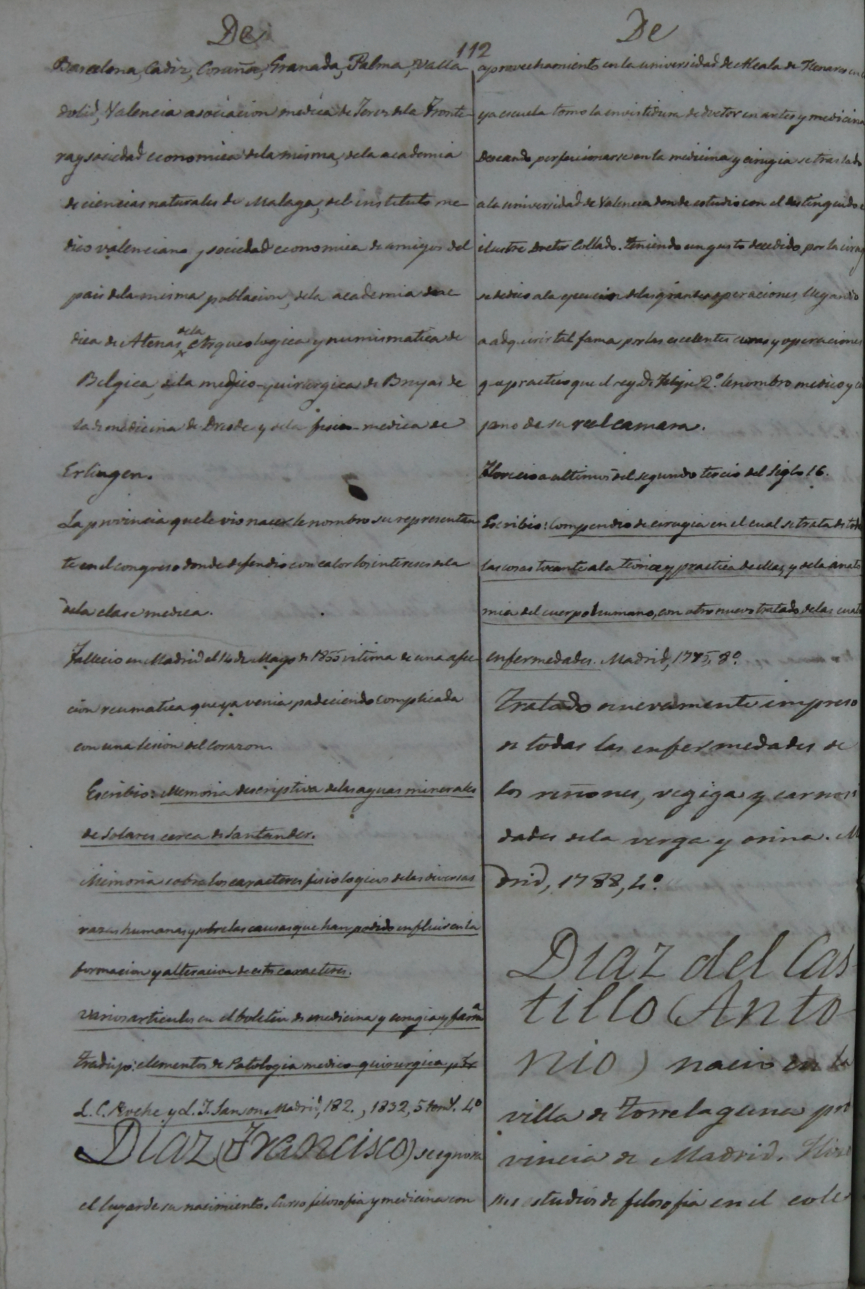 De
De
112
Barcelona, Cadiz, Coruña, Granada, Palma, Valla
dolid, Valencia asociacion medica de Jerez de la Fronte
ra y sociedad economica de la misma, de la academia
de ciencias naturales de Malaga, del instituto me
dico valenciano y sociedad economica de amigos del
pais de la misma poblacion, de la academia
dica de Atenas de la Arqueologica y numismatica de
Belgica, de la medico-quirurgica de Brujas de
la de medicina de y de la fisico-medica de
Erlingen.
La provincia que le vio nacer le nombro su representan
te en el congreso donde defendio con calor los intereses de la
de la clase medica.
Fallecio en Madrid el 14 de Mayo de 1855 vitima de una afec
cion reumatica que ya venia padeciendo complicada
con una lesion del corazon.
Escribio: Memoria descriptiva de las aguas minerales
de Solares cerca de Santander.
Memoria sobre los caracteres fisiologicos de las diversas
razas humanas y sobre las causas que han podido influir en la
formacion y alteracion de estos caracteres.
Varios articulos en el boletin de medicina y cirugia y farm.ª
Tradujo: elementos de Patologia medico-quirurgica por
L. C. Roche y L. J. Sanson Madrid, 182 , 1832, 5 tom.s 4º
Diaz (Francisco) se ygnora
el lugar de su nacimiento. Curso filosofia y medicina con
aprovechamiento en la universidad de Alcala de Henares en cu
ya escuela tomo la investidura de doctor en artes y medicina
Deseando perfeccionarse en la medicina y cirugia se traslado
a la universidad de Valencia donde estudio con el distinguido e
ilustre Doctor Collado. Teniendo un gusto decidido por la cirug
se dedico a la ejecucion de las grandes operaciones, llegando
a adquirir tal fama por las escelentes curas y operaciones
que practico que el rey D. Felipe 2º le nombro medico y ci
jano de su real camara.
Florecio a ultimos del segundo tercio del siglo 16.
Escribio: Compendio de cirugia en el cual se trata de todas
las cosas tocante a la teorica y practica de ella, y de la anato
mia del cuerpo humano, con otro nuevo tratado, de las cuatro
enfermedades. Madrid, 1775, 8º
Tratado nuevamente impreso
de todas las enfermedades de
los riñones, vegiga y carnosi
dades de la verga y orina. M
drid, 1788, 4º
Diaz del Cas
tillo (Anto
nio) nacio en la
villa de Torrelaguna pro
vincia de Madrid. Hizo
sus estudios de filosofia en el cole